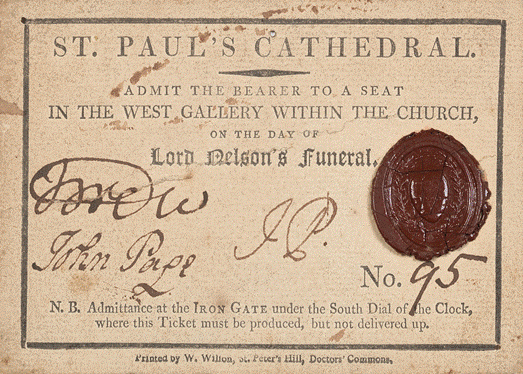 ST. PAUL'S CATHEDRAL.
ADMIT THE BEARER TO A SEAT
IN THE WEST GALLERY WITHIN THE CHURCH,
ON THE DAY OF
Lord Nelson's Funeral.
John Page
J P.
No. 95
N. B. Admittance at the IRON GATE under the South Dial of the Clock,
where this Ticket must be produced, but not delivered up.
Printed by W. Wilson, St. Peter's Hill, Doctors' Commons.